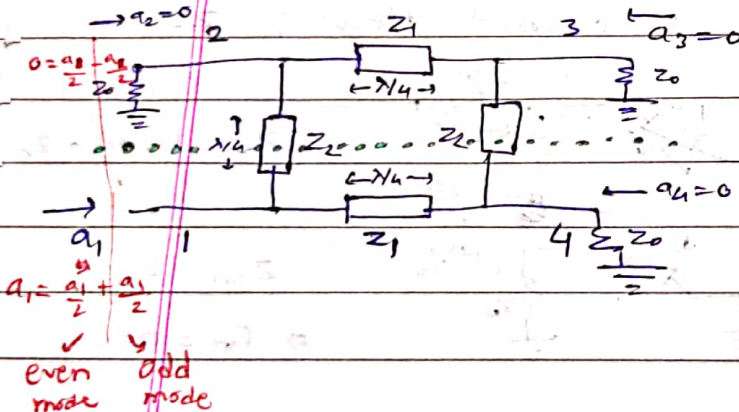 → a2=0
2
Z1
3
←
a3=0
0 = a1/2 - a1/2
Z0
←λ/4→
Z0
λ/4
Z2
Z2
←λ/4→
← a4=0
→
a1
1
Z1
4
Z0
a1 = a1/2 + a1/2
even mode
odd mode